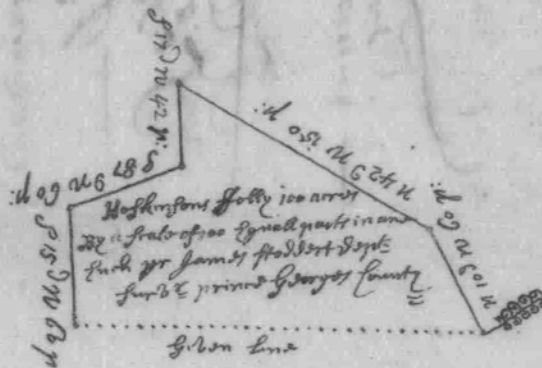 S 17 d W 42 p:
N 42 d W 150 p:
S 87 d W 60 p:
N 10 d W 60 p:
Hoskinsons ffolly 100 acres
By a scale of 100 Equall parts in one
Inch pr James Stoddert Dept:
Survr: prince Georges County
S 15 d W 66 p
Given Line